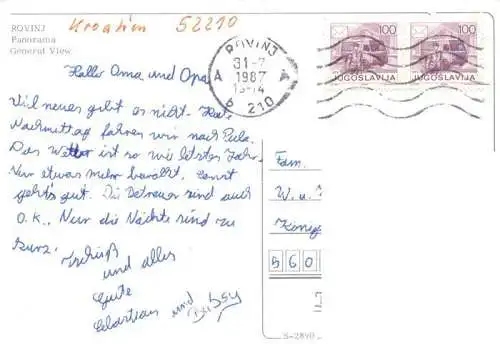 ROVINJ
Panorama
General View
Kroatien 52210
ROVINJ
31-7
1987
13-14
A
6 210
100
JUGOSLAVIJA
100
JUGOSLAVIJA
Hallo Oma und Opa
Viel neues gibt es nicht. Heute
Nachmittag fahren wir nach Pula.
Das Wetter ist so wie letztes Jahr.
Nur etwas mehr bewölkt. Sonst
geht's gut. Die Betreuer sind auch
O.K., Nur die Nächte sind zu
kurz.
Tschüß
und alles
Gute
Sebastian und
Fam.
W. u.
König
560
S-2890